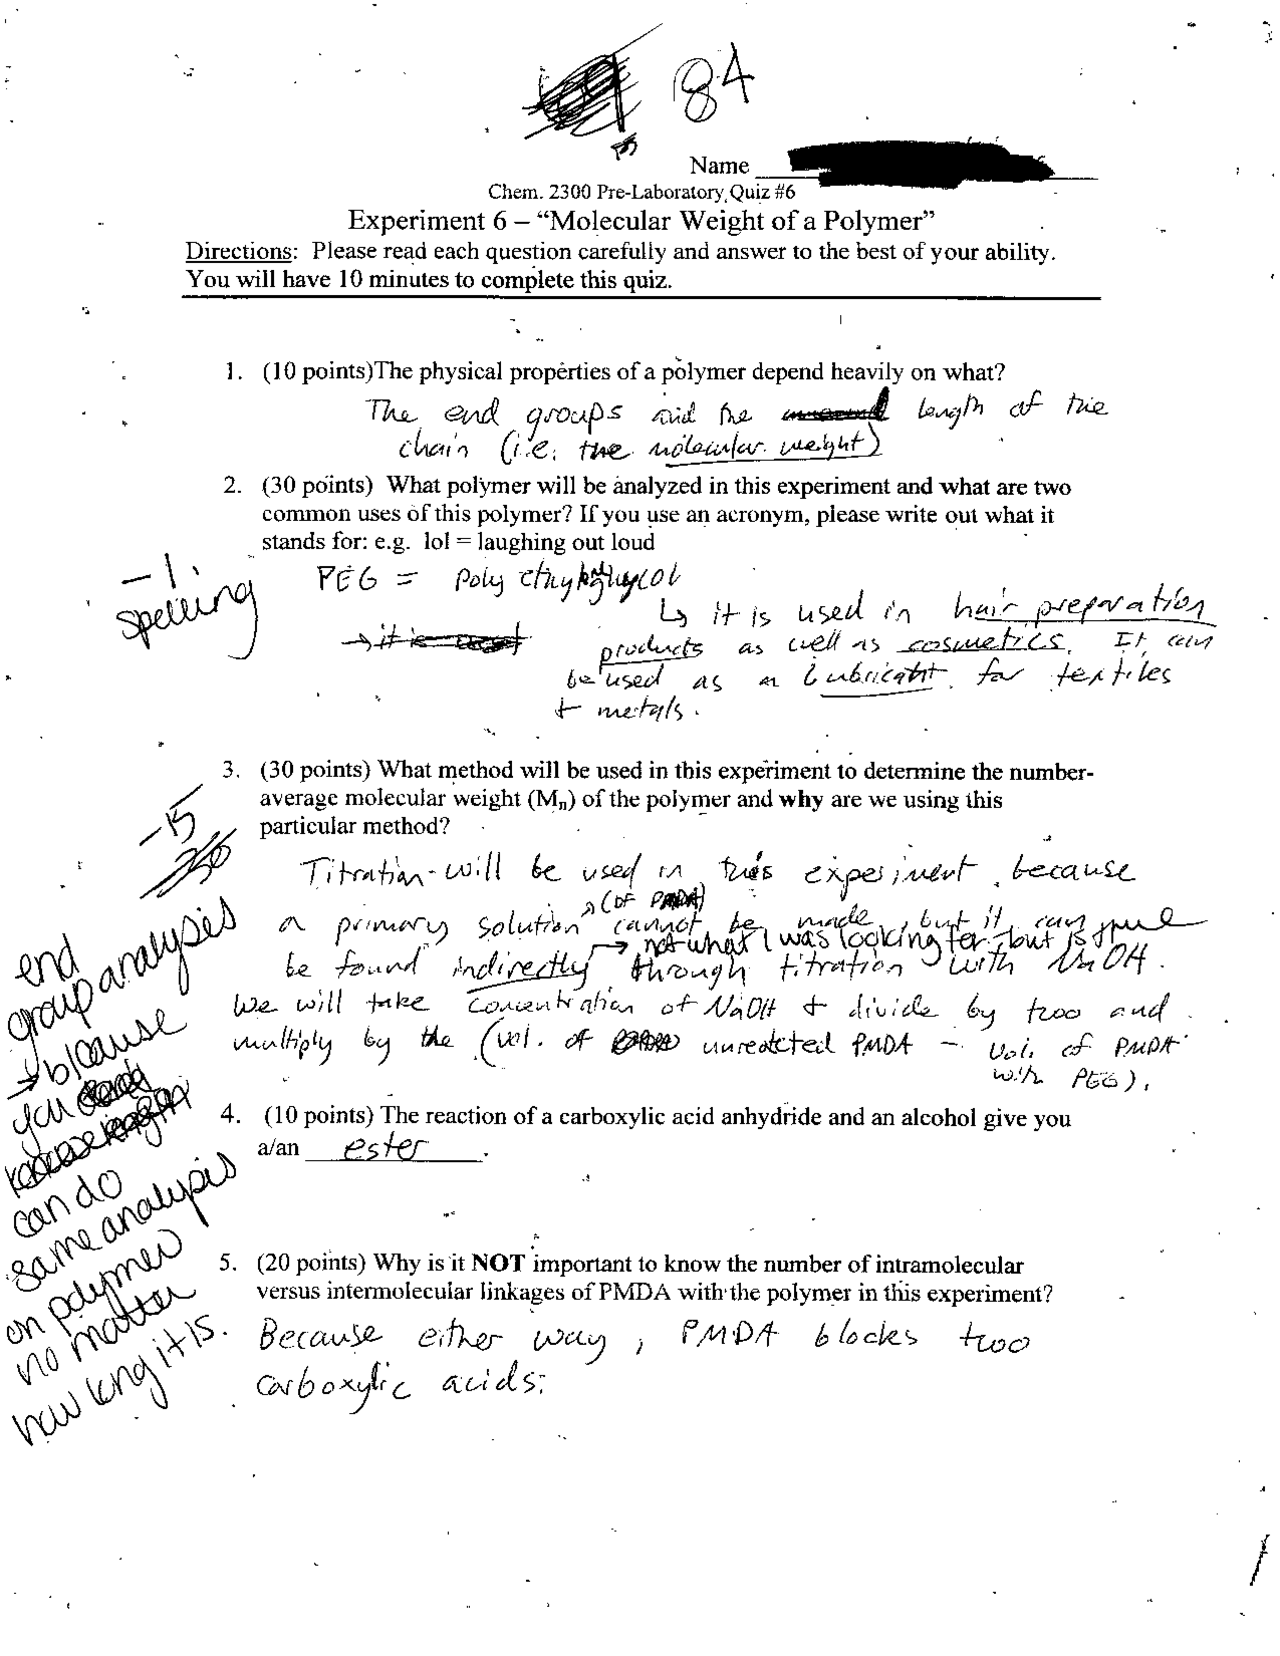 84
Name
Chem. 2300 Pre-Laboratory Quiz #6
Experiment 6 – “Molecular Weight of a Polymer”
Directions: Please read each question carefully and answer to the best of your ability.
You will have 10 minutes to complete this quiz.
1. (10 points)The physical properties of a polymer depend heavily on what?
The end groups and the length of the
chain (i.e. the molecular weight)
2. (30 points) What polymer will be analyzed in this experiment and what are two
common uses of this polymer? If you use an acronym, please write out what it
stands for: e.g. lol = laughing out loud
-1
spelling
PEG = Poly
↳ it is used in hair preparation
→ it is used
products as well as cosmetics. It can
be used as a lubricant for textiles
+ metals.
3. (30 points) What method will be used in this experiment to determine the number-
average molecular weight (Mn) of the polymer and why are we using this
particular method?
-15
Titration will be used in this experiment because
(of PMDA)
a primary solution cannot be made, but it can
→ not what I was looking for, but is true
be found indirectly through titration with NaOH.
We will take concentration of NaOH + divide by two and
multiply by the (vol. of unreacted PMDA - vol. of PMDA
with PEG).
end
group analysis
→ because
you
can do
same analysis
on polymer
no matter
how long it is.
4. (10 points) The reaction of a carboxylic acid anhydride and an alcohol give you
a/an ester.
5. (20 points) Why is it NOT important to know the number of intramolecular
versus intermolecular linkages of PMDA with the polymer in this experiment?
Because either way, PMDA blocks two
carboxylic acids.